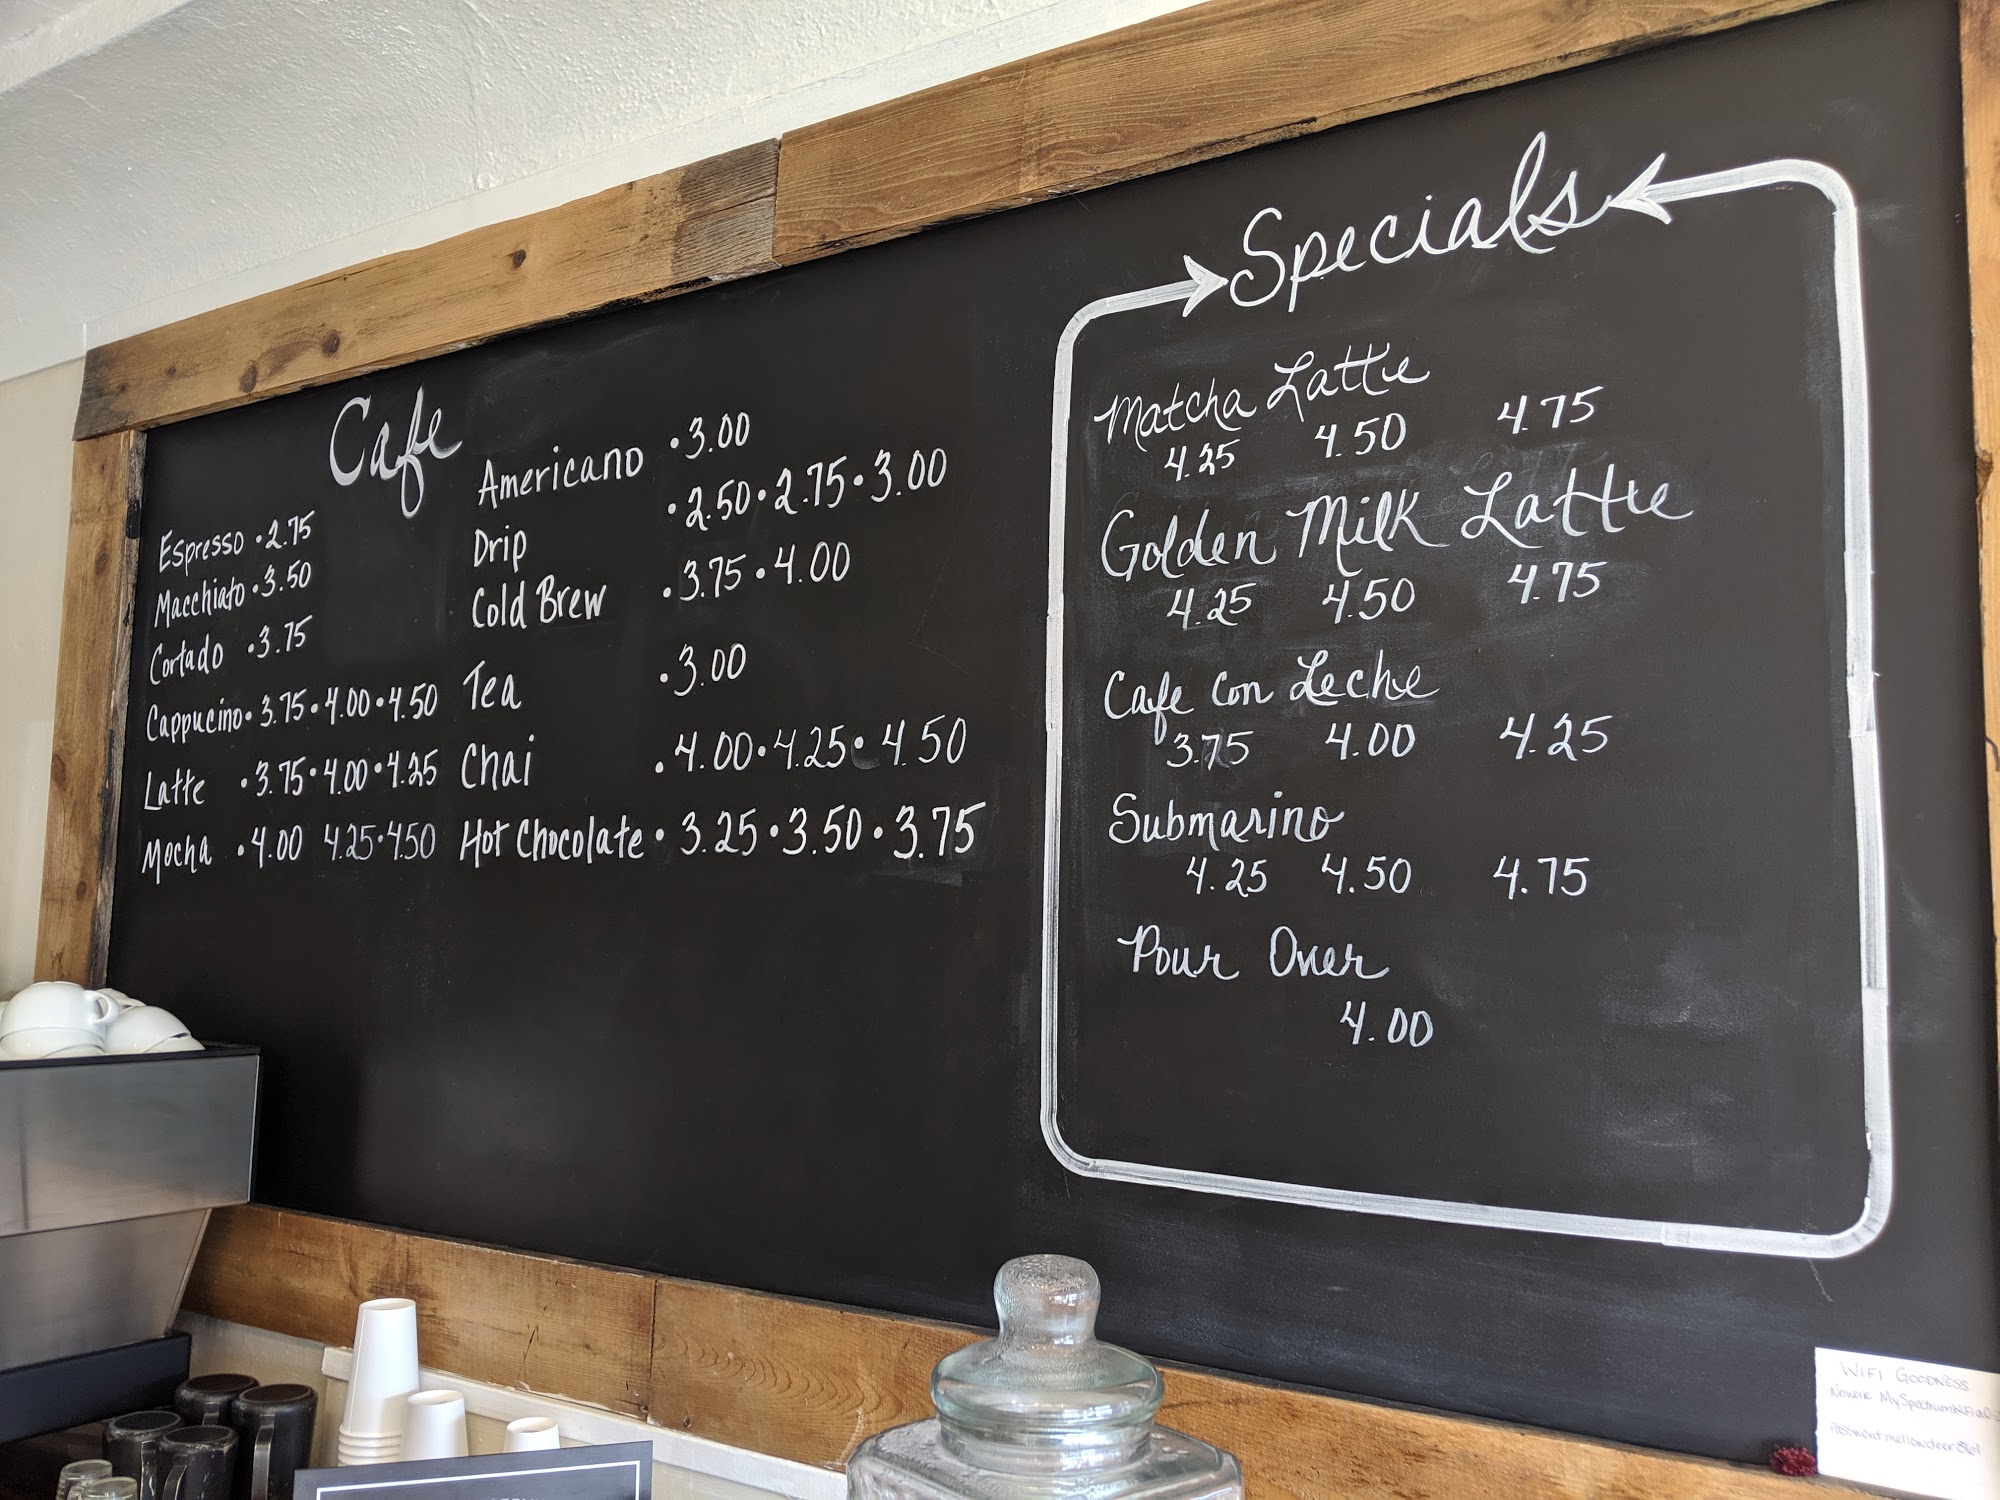 Cafe
Espresso • 2.75
Macchiato • 3.50
Cortado • 3.75
Cappucino • 3.75 • 4.00 • 4.50
Latte • 3.75 • 4.00 • 4.25
Mocha • 4.00 4.25 • 4.50
Americano • 3.00
Drip • 2.50 • 2.75 • 3.00
Cold Brew • 3.75 • 4.00
Tea • 3.00
Chai • 4.00 • 4.25 • 4.50
Hot Chocolate • 3.25 • 3.50 • 3.75
Specials
Matcha Latte
4.25 4.50 4.75
Golden Milk Latte
4.25 4.50 4.75
Cafe con Leche
3.75 4.00 4.25
Submarino
4.25 4.50 4.75
Pour Over
4.00
WIFI GOODNESS
Network
Password